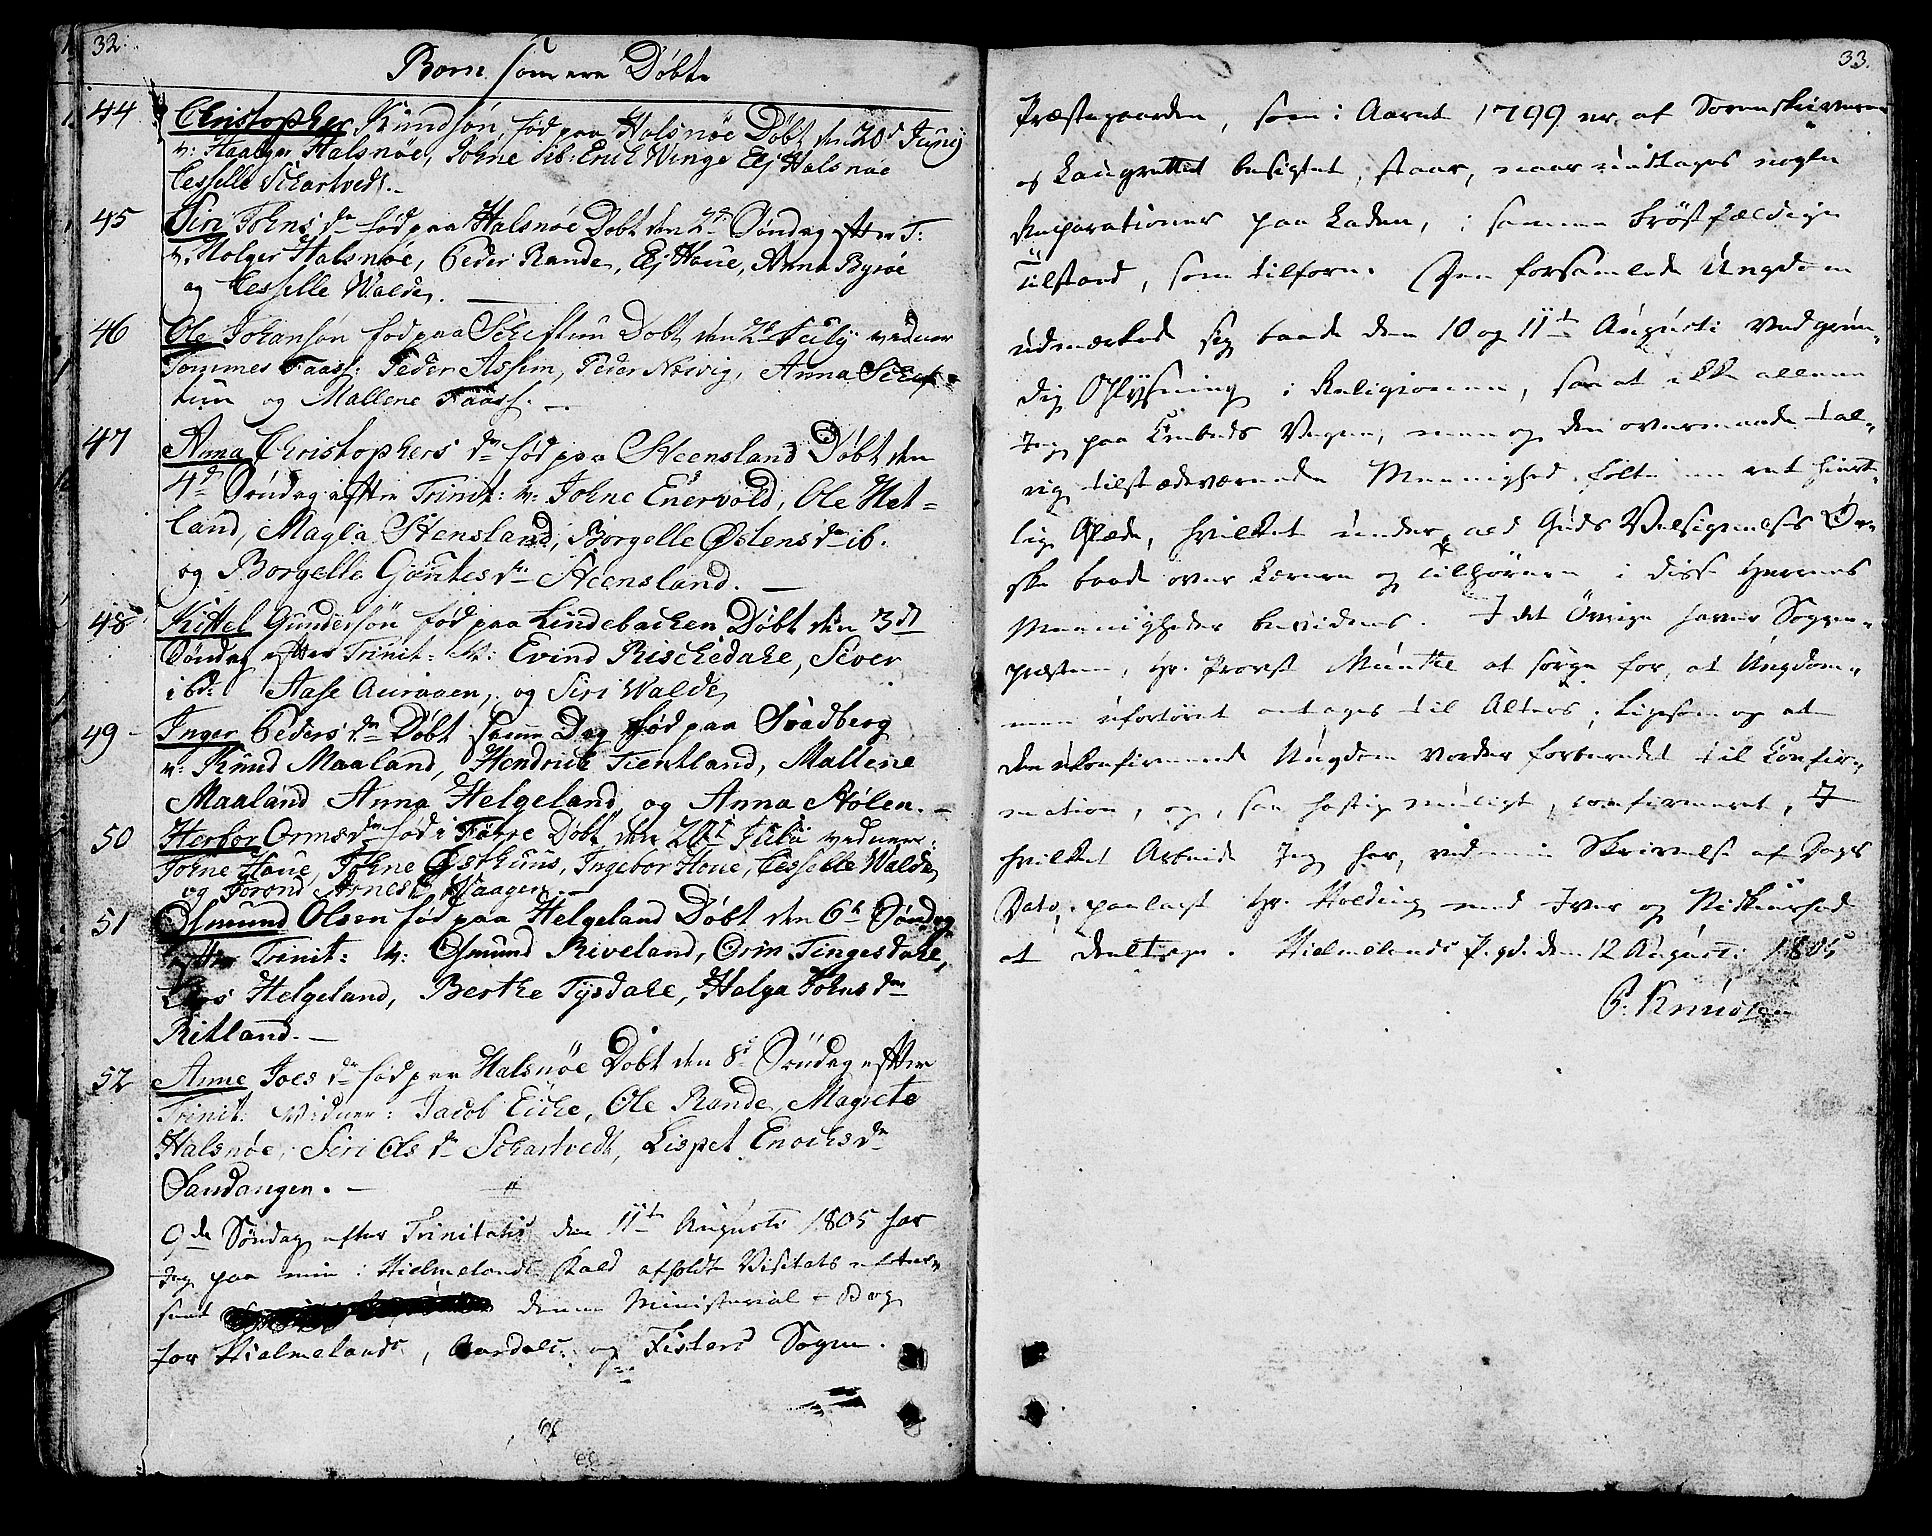 32.
Børn som ere Døbte
44 Christopher Knudsøn, fød paa Halsnøe Døbt den 20d Junij
v: Haager Halsnøe, Johne ib: Erich Winge Elj Halsnøe
Cesselle Schartvedt.
45 Siri Johns dr fød paa Halsnøe Døbt den 2de Søndag efter T:
v. Holger Halsnøe, Peder Rande, Elj Houe, Anna Byrøe
og Cesselle Walde.
46 Ole Johansøn fød paa Scheftun Døbt den 2de July vedner
Tommes Faass: Peder Assem, Peder Nesvig, Anna Schef-
tun og Mallene Faass.
47 Anna Christophers dr fød paa Steensland Døbt den
4de Søndag efter Trinit: v: Johne Enervold, Ole Het-
land, Magla Stensland, Borgelle Østens dr ib.
og Borgelle Gøntes dr Steensland.
48 Kittel Gundersøn fød paa Lindebachen Døbt den 3de
Søndag efter Trinit: v: Evind Rischedahe, Siver
ibd: Aase Auraaen, og Siri Walde,
49 Inger Peders dr Døbt samme Dag fød paa Svadberg
v: Knud Maaland, Hendrich Tientland, Mallene
Maaland Anna Helgeland, og Anna Stølen.
50 Herbor Orms dr fød i Føhre Døbt den 20de Julii vedner:
Johne Houe, Johne Østhuus, Ingebor Houe, Cesselle Walde
og Torond Arnes Waagen
51 Osmund Olsen fød paa Helgeland Døbt den 6te Søndag
efter Trinit: v: Osmund Riveland, Orm Tingesdahe,
Lars Helgeland, Berthe Tysdahe, Helga Johns dr
Ritland.
52 Anne Joes dr fød paa Halsnøe Døbt den 8de Søndag efter
Trinit: Widner: Jacob Eiche, Ole Rande, Magrete
Halsnøe, Siri Ols dr Schartvedt, Lispet Enochs dr
Sandangen.
9de Søndag efter Trinitatis den 11te Augusti 1805 har
Jeg paa min i Hielmelands Kald afholdte Visitats efter-
seet denne Ministerial-Bog
for Hielmelands, Aardals og Fisters Sogne.
33.
Præstegaarden, som i Aaret 1799 er af Sorenskriveren
og Laugrettet besigtet, staar, naar undtages nogle
Reparationer paa Laden, i samme brøstfældige
Tilstand, som tilforn. Den forsamlede Ungdom
udmærked sig baade den 10 og 11te Augusti ved grun-
dig Oplysning i Religionen, saa at ikke allene
Jeg paa Embeds Vegne, men og den overmaade tal-
rig tilstædeværende Meenighed følte en ret hiert-
lig Glæde, hvilket under ald Guds Velsignelses Øn-
ske baade over Lærere og Tilhørere i disse Herrens
Meenigheder bevidnes. I det Øvrige haver Sogne-
præsten, Hr. Provst Munthe at sørge for, at Ungdom-
men ufortøvet antages til Alters, ligesom og at
den ukonfirmerede Ungdom vorder forberedet til Confir-
mation, og, saa hastig muligt, confirmeret, I
hvilket Arbeide Jeg har, ved min Skrivelse af Dags
Dato, paalagt Hr. Holding med Iver og Nidkiærhed
at deeltage. Hielmelands P.gd. den 12 Augusti 1805
P. Knudsen